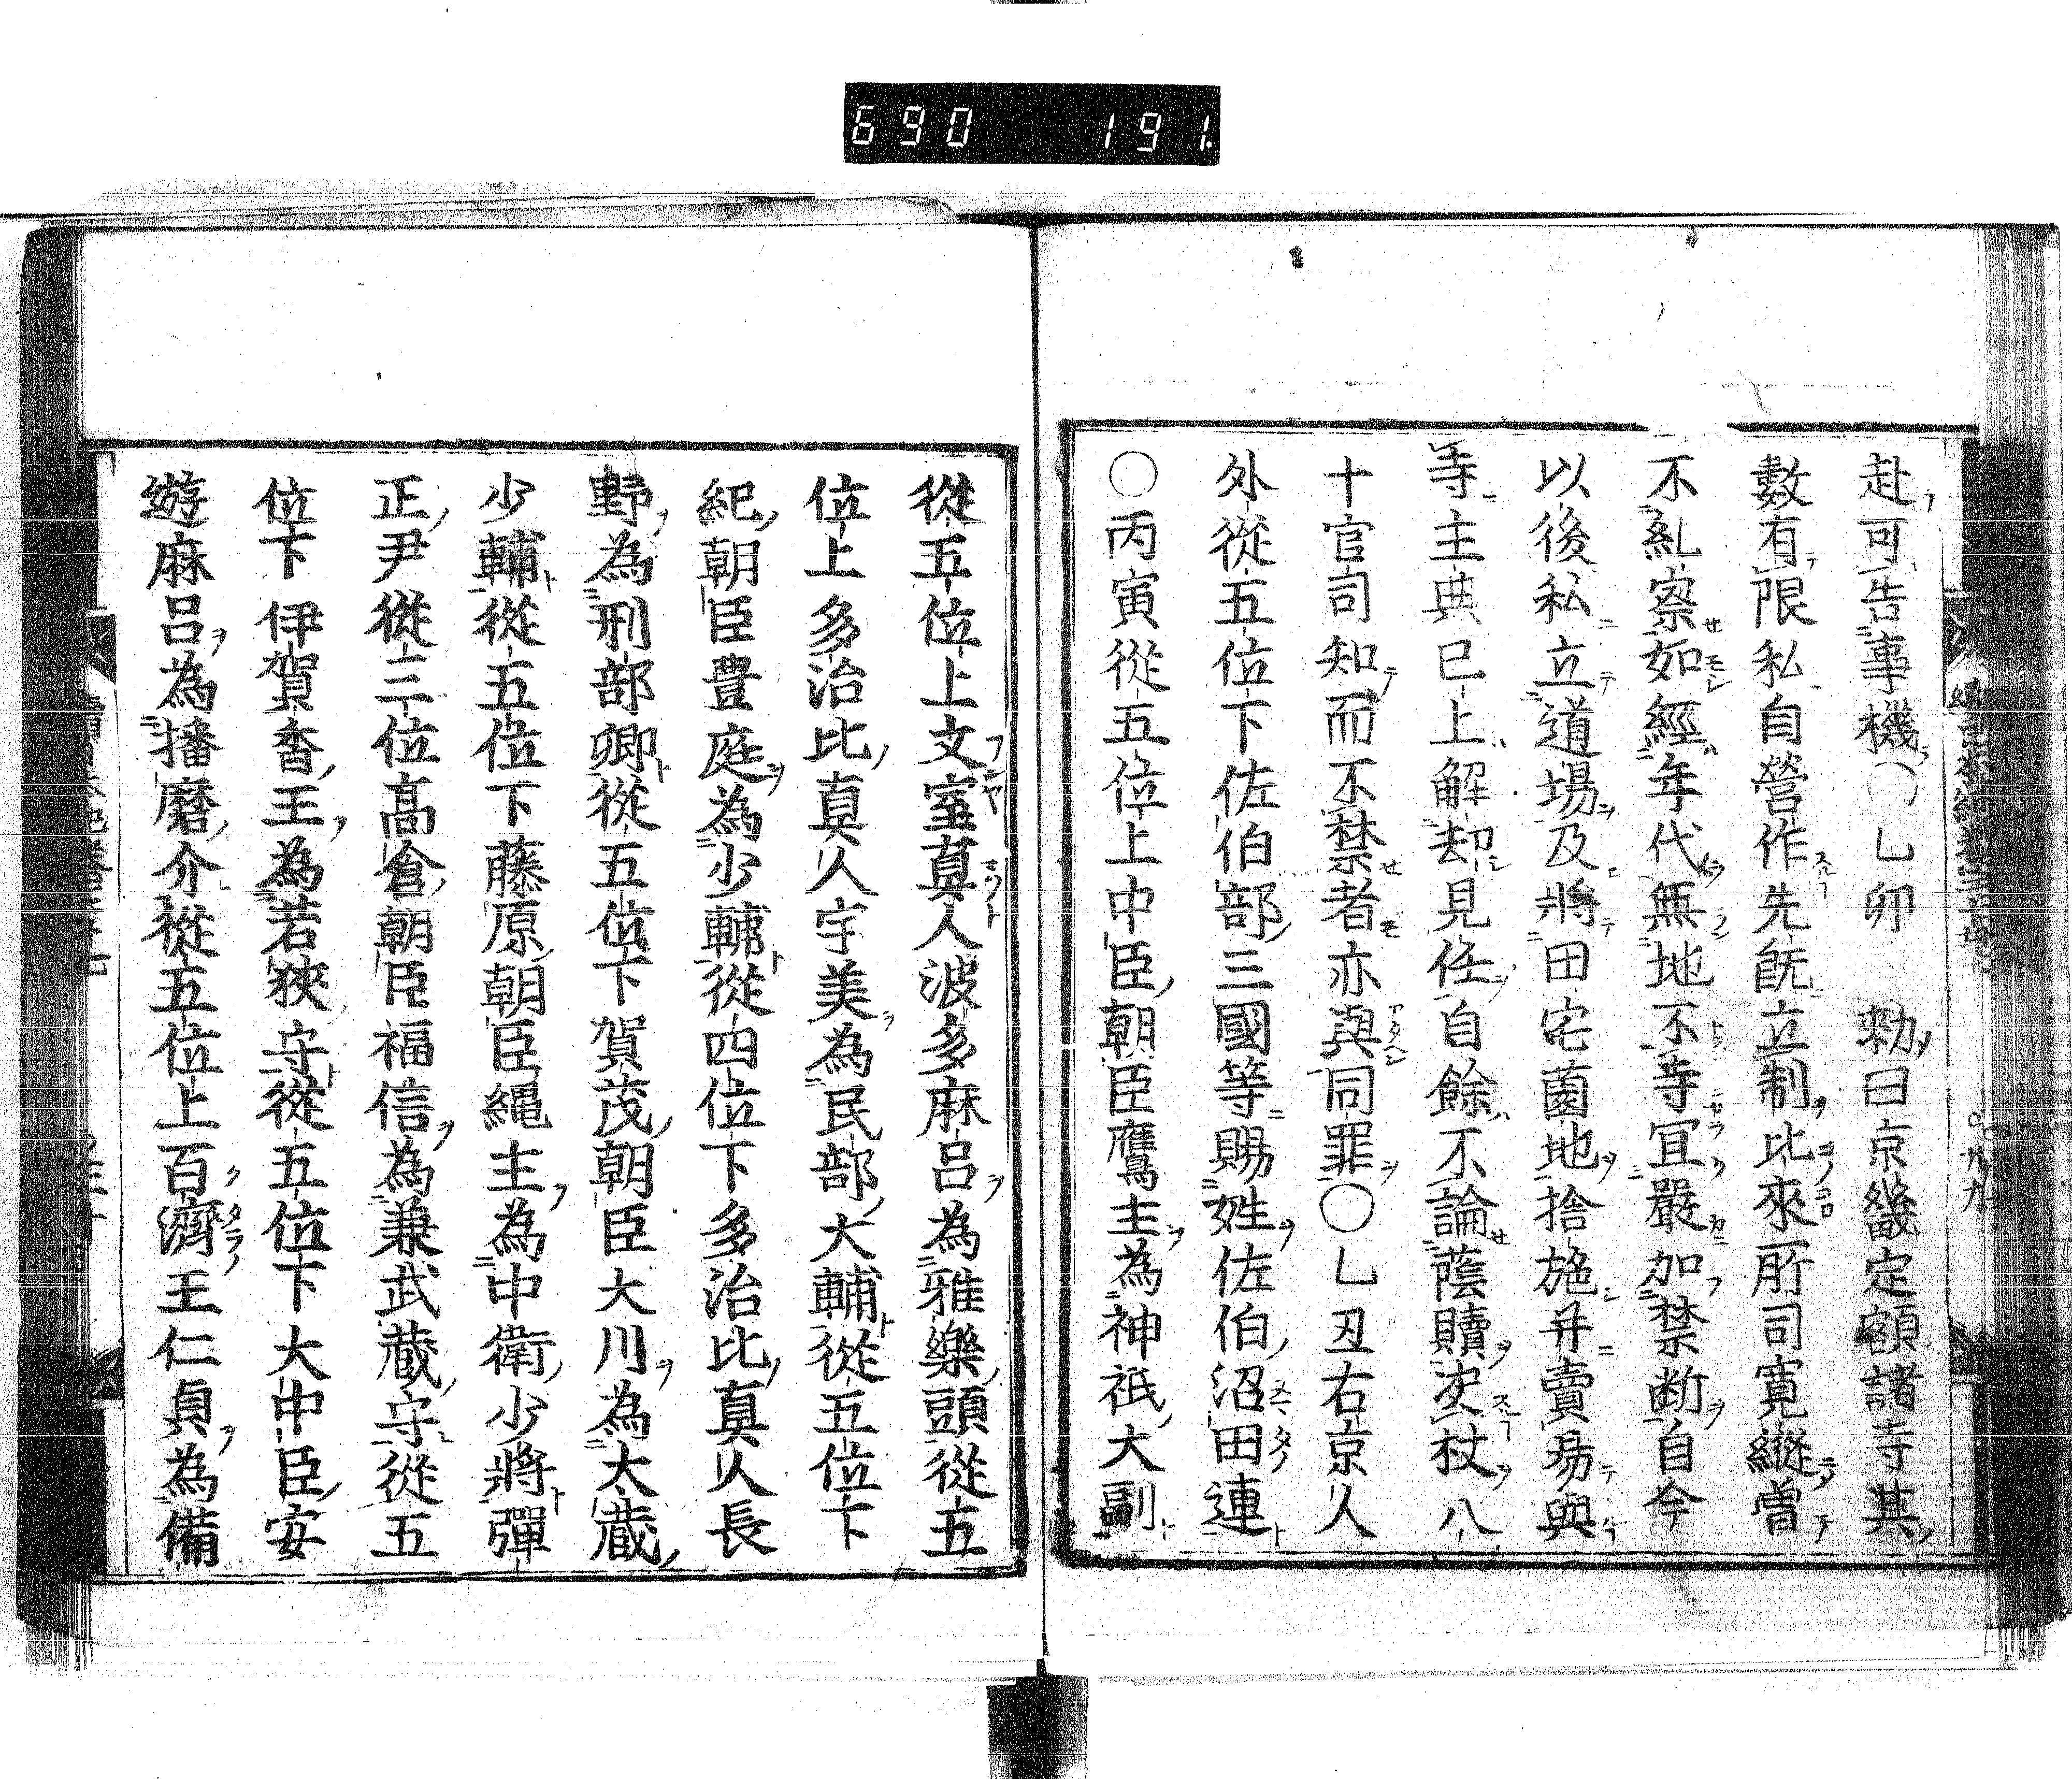 690 191
赴可告事機〇乚卯 勑曰京畿定額諸寺其
數有限私自營作先既立制比來所司寛縱曽
不糺察如經年代無地不寺宜嚴加禁断自今
以後私立道場及將田宅薗地捨施并賣昜與
寺主典已上解却見任自餘不論蔭贖决杖八
十官司知而不禁者亦與同罪〇乚丑右京人
外從五位下佐伯部三國等賜姓佐伯沼田連
〇丙寅從五位上中臣朝臣鷹主為神祇大副
從五位上文室真人波多麻呂為雅樂頭從五
位上多治比真人宇美為民部大輔從五位下
紀朝臣豊庭為少輔從四位下多治比真人長
野為刑部卿從五位下賀茂朝臣大川為大藏
少輔從五位下藤原朝臣繩主為中衛少將彈
正尹從三位髙倉朝臣福信為兼武藏守從五
位下伊賀香王為若狹守從五位下大中臣安
遊麻呂為播磨介從五位上百濟王仁貞為備